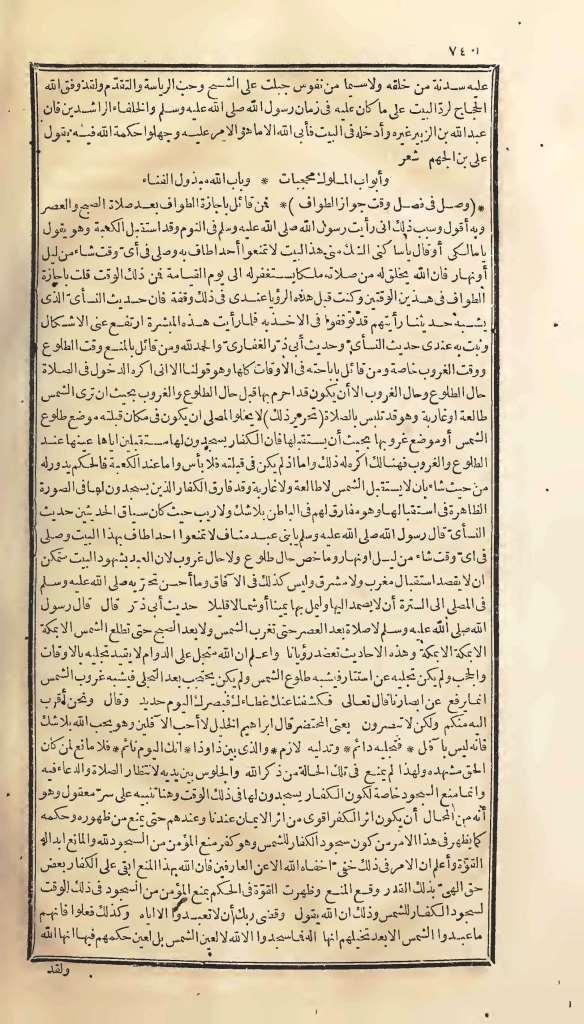 ٧٤٠١
عليه سدنة من خلقه ولاسيما من نفوس جبلت على الشح وحب الرياسة والتقدم ولقد وفق الله
الحجاج لرد البيت على ما كان عليه فى زمان رسول الله صلى الله عليه وسلم والخلفاء الراشدين فان
عبد الله بن الزبير غيره وأدخله فى البيت فأبى الله الا ما هو الامر عليه وجهلوا حكمة الله فيه يقول
على بن الجهم شعر
وأبواب الملوك محجبات * وباب الله مبذول الفناء
* (وصل فى فصل وقت جواز الطواف) * فمن قائل باجازة الطواف بعد صلاة الصبح والعصر
وبه أقول وسبب ذلك انى رأيت رسول الله صلى الله عليه وسلم فى النوم وقد استقبل الكعبة وهو يقول
يا مالكى أو قال يا ساكنى الشك منى هذا البيت لا تمنعوا أحدا طاف به وصلى فى أى وقت شاء من ليل
أو نهار فان الله يخلق له من صلاته ملكا يستغفر له الى يوم القيامة فمن ذلك الوقت قلت باجازة
الطواف فى هذين الوقتين وكنت قبل هذه الرؤيا عندى فى ذلك وقفة فان حديث النسأى الذى
يشبه حديثنا رأيتهم قد توقفوا فى الاخذ به فلما رأيت هذه المبشرة ارتفع عنى الاشكال
وثبت به عندى حديث النسأى وحديث أبى ذر الغفارى والحمد لله ومن قائل بالمنع وقت الطلوع
ووقت الغروب خاصة ومن قائل باباحته فى الاوقات كلها وهو قولنا الا انى اكره الدخول فى الصلاة
حال الطلوع وحال الغروب الا أن يكون قد احرم بها قبل حال الطلوع والغروب بحيث ان ترى الشمس
طالعة او غاربة وهو قد تلبس بالصلاة (تحرير ذلك) لا يخلو المصلى ان يكون فى مكان قبلته موضع طلوع
الشمس أو موضع غروبها بحيث أن يستقبلها فان الكفار يسجدون لها مستقبلين اياها عينها عند
الطلوع والغروب فهنالك اكره له ذلك واما اذا لم يكن فى قبلته فلا بأس واما عند الكعبة فالحكم يدور له
من حيث شاء بان لا يستقبل الشمس لا طالعة ولا غاربة وقد فارق الكفار الذين يسجدون لها فى الصورة
الظاهرة فى استقبالها وهو مفارق لهم فى الباطن بلا شك ولا ريب حيث كان سياق الحديثين حديث
النسأى قال رسول الله صلى الله عليه وسلم يا بنى عبد مناف لا تمنعوا احدا طاف بهذا البيت وصلى
فى اى وقت شاء من ليل او نهار وما خص حال طلوع ولا حال غروب لان العبد بشهود البيت متمكن
ان لا يقصد استقبال مغرب ولا مشرق وليس كذلك فى الآفاق وما أحسن تحريه صلى الله عليه وسلم
فى المصلى الى السترة أن لا يصمد اليها وليمل بها يمينا أو شمالا قليلا حديث أبى ذر قال قال رسول
الله صلى الله عليه وسلم لا صلاة بعد العصر حتى تغرب الشمس ولا بعد الصبح حتى تطلع الشمس الا بمكة
الا بمكة الا بمكة وهذه الاحاديث تعضد رؤيانا واعلم ان الله متجل على الدوام لا يقيد تجليه بالاوقات
والحجب ولم يكن تجليه عن استتار فيشبه طلوع الشمس ولم يكن يحتجب بعد التجلى فيشبه غروب الشمس
انما يرفع عن ابصارنا قال تعالى فكشفنا عنك غطاءك فبصرك اليوم حديد وقال ونحن أقرب
اليه منكم ولكن لا تبصرون يعنى المحتضر قال ابراهيم الخليل لا أحب الآفلين وهو يحب الله بلا شك
فانه ليس بآفل * فتجليه دائم * وتدليه لازم * والذى بين ذا وذا * انك اليوم نائم * فلا مانع لمن كان
الحق مشهده ولهذا لم يمنع فى تلك الحالة من ذكر الله والجلوس بين يديه لانتظار الصلاة والدعاء فيه
وانما منع السجود خاصة لكون الكفار يسجدون لها فى ذلك الوقت وهنا تنبيه على سر معقول وهو
أنه من المحال أن يكون اثر الكفر اقوى من اثر الايمان عندنا وعندهم حتى يمنع من ظهوره وحكمه
كما يظهر فى هذا الامر من كون سجود الكفار للشمس وهو كفر منع المؤمن من السجود لله والمانع ابدا له
القوة وأعلم ان الامر فى ذلك خفى اخفاه الله الا عن العارفين فان الله بهذا المنع ابقى على الكفار بعض
حق الهى بذلك القدر وقع المنع وظهرت القوة فى الحكم بمنع المؤمن من السجود فى ذلك الوقت
لسجود الكفار للشمس وذلك ان الله يقول وقضى ربك أن لا تعبدوا الا اياه وكذلك فعلوا فانهم
ما عبدوا الشمس الا بعد تخيلهم انها اله فما سجدوا الا لله لا لعين الشمس بل لعين حكمهم فيها انها الله
ولقد